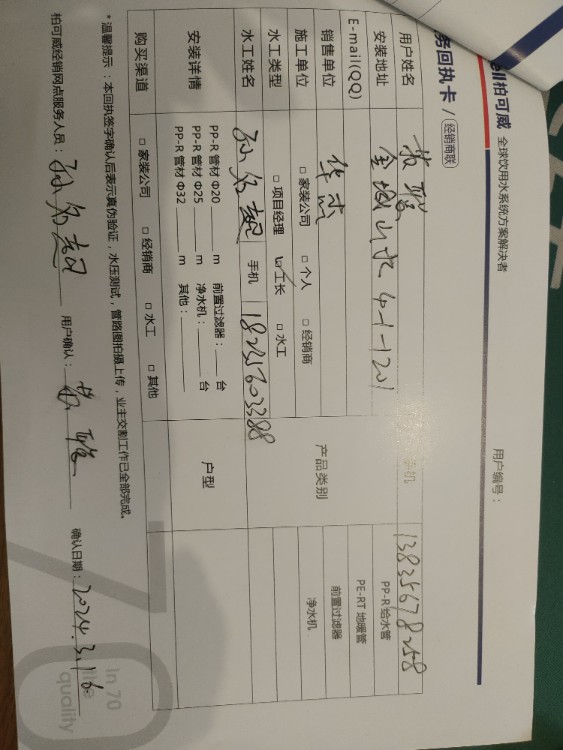 ell柏可威 全球饮用水系统方案解决者
务回执卡 / 经销商联 用户编号：
用户姓名 手机 13835678258
安装地址 金城山水 4-1-1201
E-mail(QQ)
销售单位 华杰 产品类别 PP-R 给水管
PE-RT 地暖管
施工单位 □ 家装公司 □ 个人 □ 经销商 前置过滤器
水工类型 □ 项目经理 ☑ 工长 □ 水工 净水机
水工姓名 手机 18235603388
安装详情 PP-R 管材 Φ20 ____ m 前置过滤器：____ 台 户型
PP-R 管材 Φ25 ____ m 净水机：____ 台
PP-R 管材 Φ32 ____ m 其他：____
购买渠道 □ 家装公司 □ 经销商 □ 水工 □ 其他
*温馨提示：本回执签字确认后表示真伪验证，水压测试，管路图拍摄上传，业主交割工作已全部完成。
柏可威经销网点服务人员： 用户确认： 确认日期：2024.3.16
In 70
the
quality